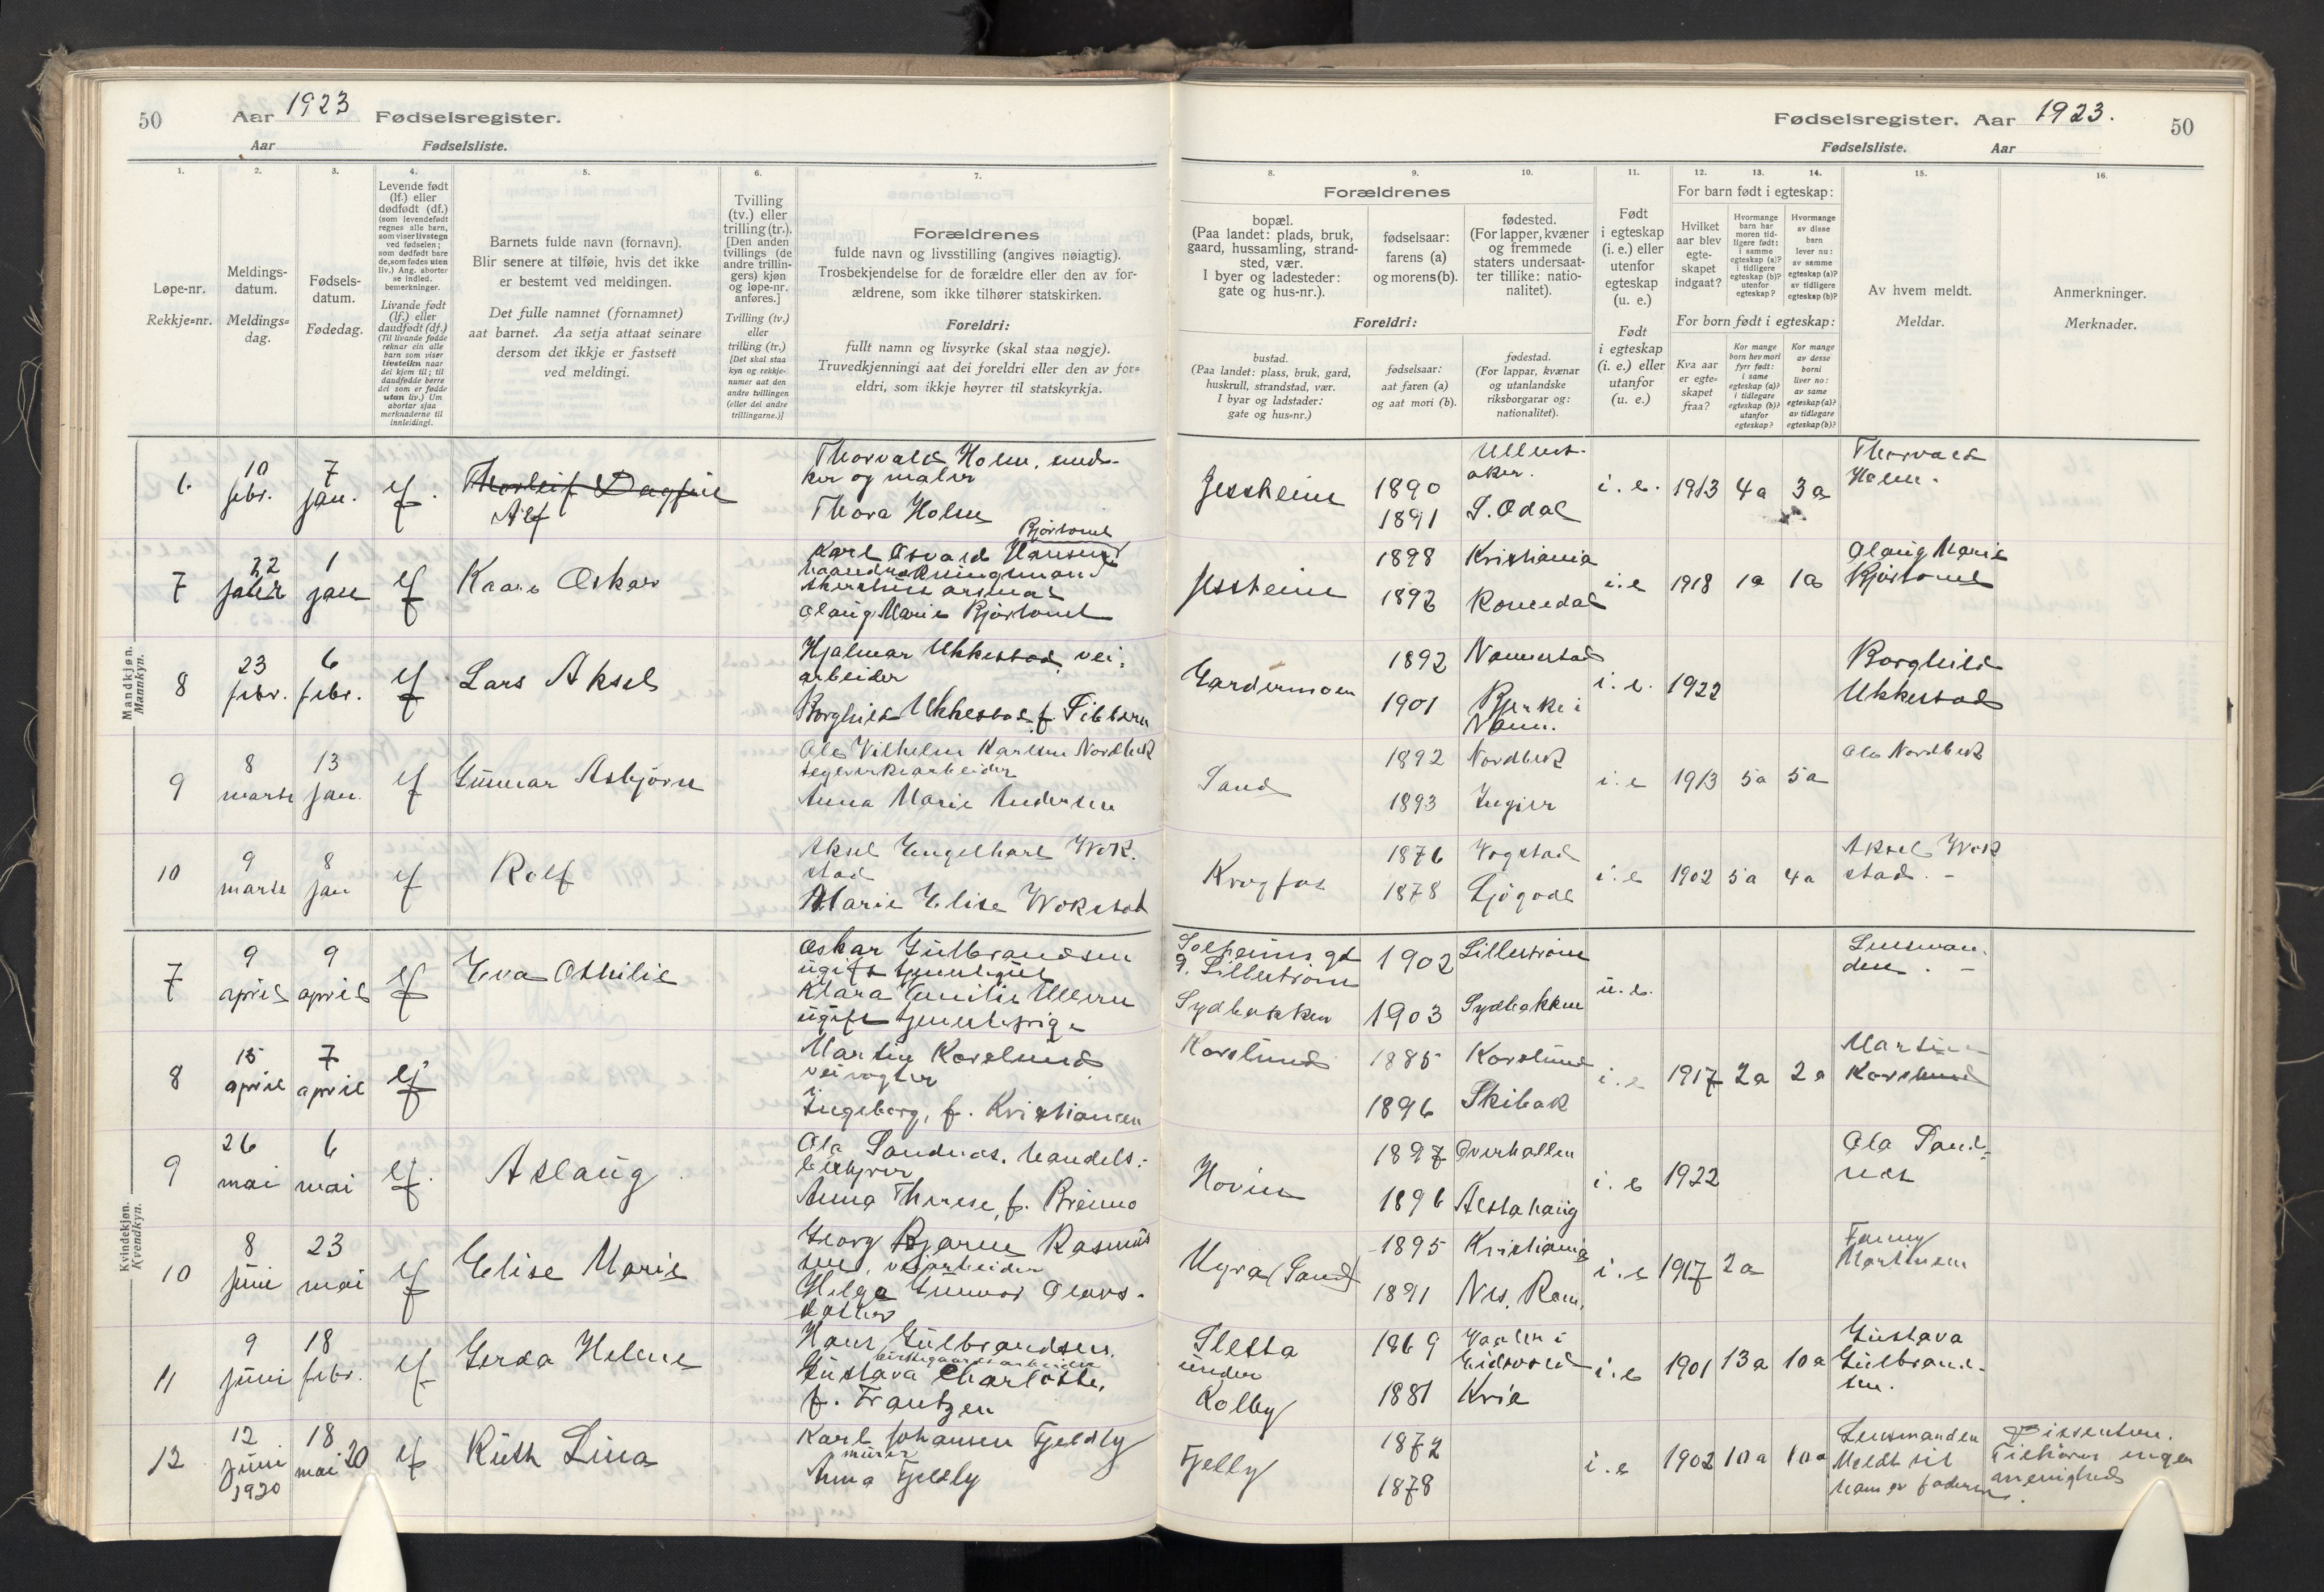 50
Aar 1923 Fødselsregister.
Aar Fødselsliste.
Fødselsregister. Aar 1923. 50
Fødselsliste. Aar
1. 2. 3. 4. 5. 6. 7.
Løpe-nr.
Rekkje=nr.
Meldings-
datum.
Meldings=
dag.
Fødsels-
datum.
Fødedag.
Levende født
(lf.) eller
dødfødt (df.)
(som levendefødt
regnes alle barn,
som viser livstegn
ved fødselen;
som dødfødt bare
de, som fødes uten
liv.) Ang. aborter
se indled.
bemerkninger.
Livande født
(lf.) eller
daudfødt (df.)
(Til livande fødde
reknar ein alle
barn som viser
livsteikn naar
dei kjem til; til
daudfødde berre
dei som er fødde
utan liv.) Um
abortar sjaa
merknaderne til
innleidingi.
Barnets fulde navn (fornavn).
Blir senere at tilføie, hvis det ikke
er bestemt ved meldingen.
Det fulle namnet (fornamnet)
aat barnet. Aa setja attaat seinare
dersom det ikkje er fastsett
ved meldingi.
Tvilling
(tv.) eller
trilling (tr.).
[Den anden
tvillings (de
andre trillin-
gers) kjøn
og løpe-nr.
anføres.]
Tvilling (tv.)
eller
trilling (tr.)
[Det skal staa
kyn og rekkje-
numer aat den
andre tvillingen
(eller dei andre
trillingarne.)]
Forældrenes
fulde navn og livsstilling (angives nøiagtig).
Trosbekjendelse for de forældre eller den av for-
ældrene, som ikke tilhører statskirken.
Foreldri:
fullt namn og livsyrke (skal staa nøgje).
Truvedkjenningi aat dei foreldri eller den av for=
eldri, som ikkje høyrer til statskyrkja.
8. 9. 10. 11. 12. 13. 14. 15. 16.
Forældrenes
bopæl.
(Paa landet: plads, bruk,
gaard, hussamling, strand-
sted, vær.
I byer og ladesteder:
gate og hus-nr.).
fødselsaar:
farens (a)
og morens (b).
fødested.
(For lapper, kvæner
og fremmede
staters undersaat-
ter tillike: natio-
nalitet).
Foreldri:
bustad.
(Paa landet: plass, bruk, gard,
huskrull, strandstad, vær.
I byar og ladstader:
gate og hus=nr.)
fødselsaar:
aat faren (a)
og aat mori (b).
fødestad.
(For lappar, kvænar
og utanlandske
riksborgarar og:
nationalitet).
Født
i egteskap
(i. e.) eller
utenfor
egteskap
(u. e.)
Født
i egteskap
(i. e.) eller
utanfor
(u. e.)
For barn født i egteskap:
Hvilket
aar blev
egte-
skapet
indgaat?
Hvormange
barn har
moren tid-
ligere født:
i samme
egteskap (a)?
i tidligere
egteskap (b)?
utenfor
egteskap?
Hvormange
av disse
barn
lever nu:
av samme
egteskap (a)?
av tidligere
egteskap (b)?
For born født i egteskap:
Kva aar
er egte=
skapet
fraa?
Kor mange
born hev mori
fyrr født:
i same
egteskap (a)?
i tidlegare
egteskap (b)?
utanfor
egteskap?
Kor mange
av desse
borni
liver no:
av same
egteskap (a)?
av tidlegare
egteskap (b)?
Av hvem meldt.
Meldar.
Anmerkninger.
Merknader.
Mandkjøn.
Mannkyn.
6. 10 febr. 7 jan. lf. Thorleif Dagfin
Alf
Thorvald Holm, sned-
ker og maler
Thora Holm
Jessheim 1890 Ullens-
aker.
1891 S. Odal
i. e. 1913 4a 3a Thorvald
Holm.
7 22 jan lf Kaare Oskar
1
Karl Osvald Hansen
Bjørtomt
Olaug Marie Bjørtomt
Jessheim 1898 Kristiania
1892 Romedal
i. e 1918 1a 1a Olaug Marie
Bjørtomt
8 23 febr. 6 febr. lf Lars Aksel
Hjalmar Ukkestad, vei-
arbeider
Borghild Ukkestad f. Sibbern
Gardermoen 1892 Nannestad
1901 Bjerke i
Nann.
i. e. 1922 Borghild
Ukkestad
9 8 marts 13 jan. lf Gunnar Asbjørn
Ole Vilhelm Karlsen Nordbek
teglverksarbeider
Anna Marie Andersen
Sand 1892 Nordbek
1893 Ingier
i. e 1913 5a 5a Ole Nordbek
10 9 marts 8 jan lf Rolf
Aksel Engelhart Wok-
stad
Marie Elise Wokstad
Krogfos 1876 Vogstad
1878 Sjøgodt
i. e 1902 5a 4a Aksel Wok
stad. -
Kvindekjøn.
Kvendkyn.
7 9 april 9 april lf Eva Othilie
Oskar Gulbrandsen
ugift tjenestegut
Klara Emilie Ullern
ugift tjenestepige
Solheim gd
p. Lillestrøm
Sydbakken
1902 Lillestrøm
1903 Sydbakken
u. e. Lensman-
den. -
8 15 april 7 april lf
Martin Korslund
veivogter
Ingeborg, f. Kristiansen
Korslund 1885 Korslund
1896 Skibak
i. e 1917 2a 2a Martin
Korslund
9 26 mai 6 mai lf. Aslaug
Ola Sandnæs, handels-
betjener
Anna Therese, f. Brenno
Hovin 1897 Overhallen
1896 Alstahaug
i. e 1922 Ola Sand-
næs
10 8 juni 23 mai lf Elise Marie
Georg Bjarne Rasmus
sen, veiarbeider
Helga Gunvor Olavs-
datter
Myra (Sand) 1895 Kristiania
1891 Nes, Rom.
i. e 1917 2a Fanny
Martinsen
11 9 juni 18 febr. lf Gerda Helene
Hans Gulbrandsen,
kirkegaardsarbeider
Gustava Charlotte,
f. Frantzen
Sletta
under
Kolby
1869 Vaaler i
Eidsvold
1881 Kria
i. e 1901 13a 10a Gustava
Gulbrand-
sen.
12 12 juni 1920 18 mai 20 lf Ruth Lina
Karl Johansen Fjeldly
murer
Anna Fjeldly
Fjelly 1872
1878
i. e 1902 10a 10a Lensmanden
Meldt til
ham av faderen
Dissentere.
Tilhører ingen
menighed.